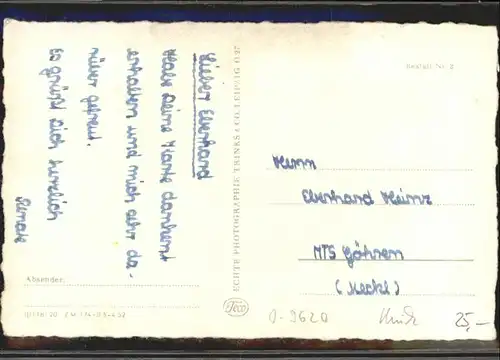 Lieber Eberhard
Habe Deine Karte dankent
erhalten und mich sehr da-
rüber gefreut.
Es grüßt Dich herzlich
Renate
Absender:
ECHTE PHOTOGRAPHIE TRINKS & CO. LEIPZIG O 27
Bestell Nr. 2
Herrn
Eberhard Heinz
MTS Göhren
(Meckl)
Trico
25,-